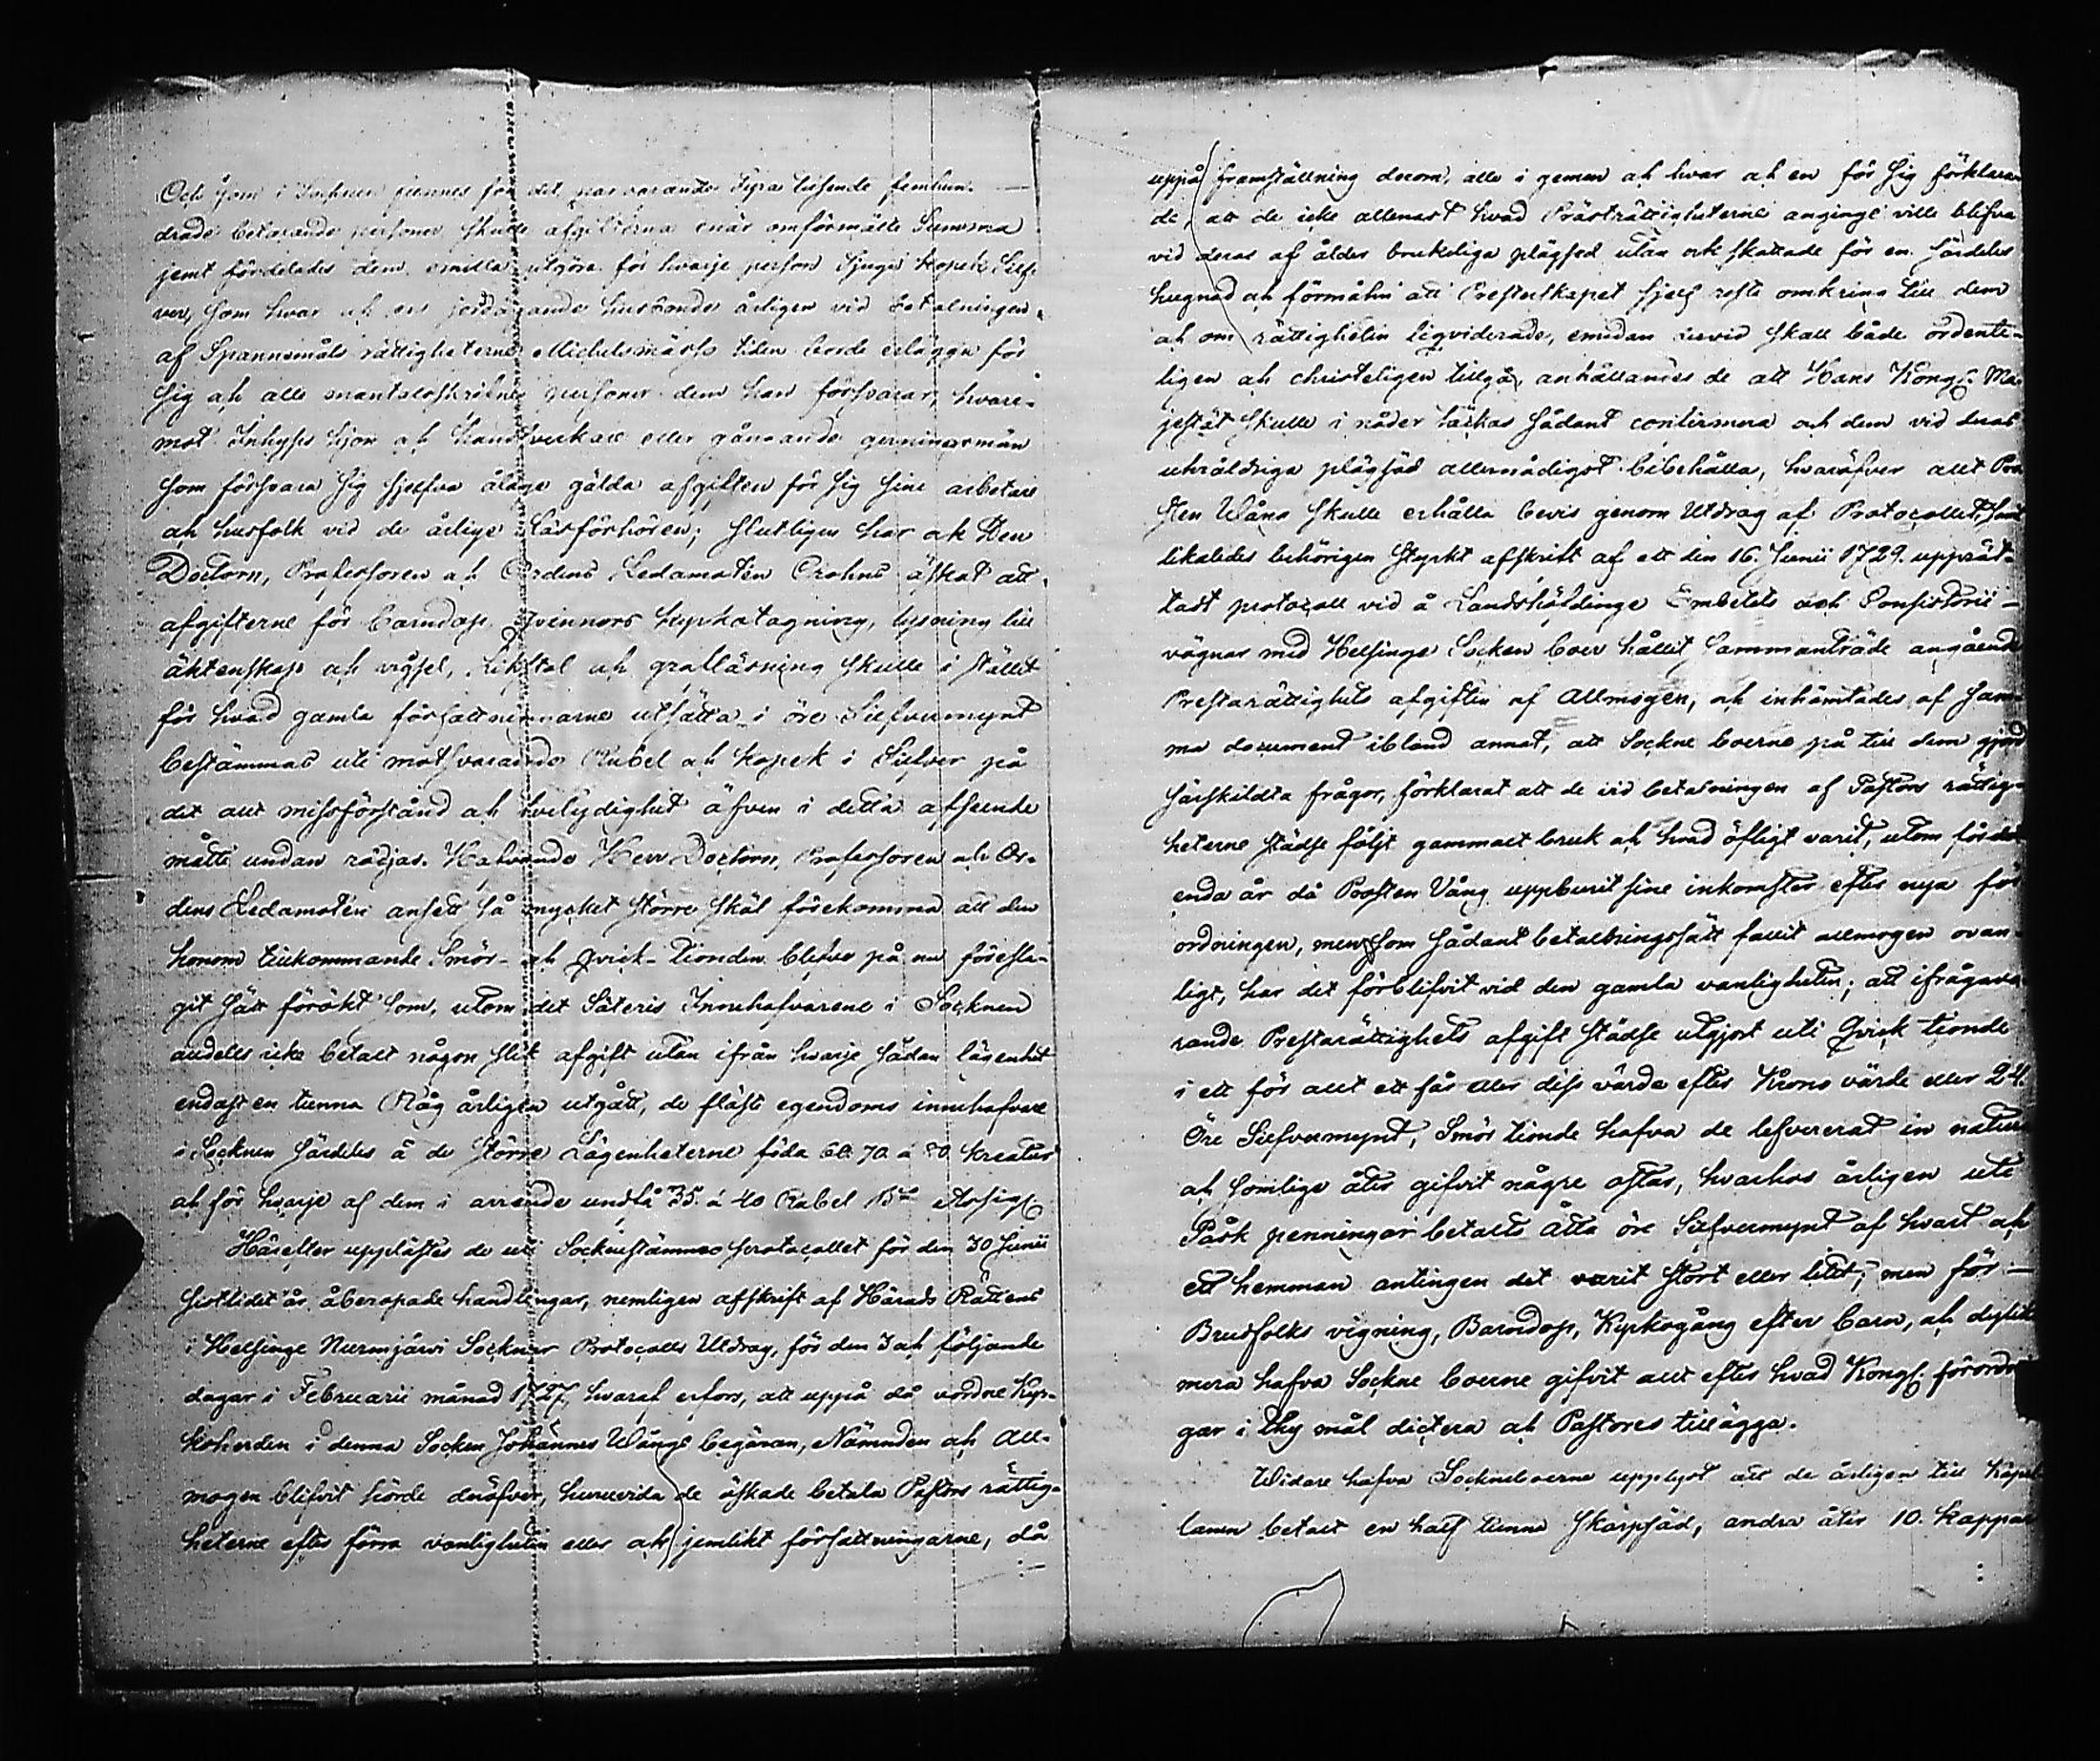 Och som i Socknen finnes för det närvarande Fyra tusende femhun-
drade betalande personer skulle afgifterna enär omförmälte Summa
jemt fördelades dem emillan utgöra för hvarje person Sjugu kopek Silf-
ver, som hvar och en jordägande husbonde årligen vid betalningen
af Spannemåls rättigheterne Michelsmässo tiden borde erlägga för
sig och alle mantalsskrifne personer dem han försvarar, hvare-
mot Inhyses hjon och handtverkare eller gångande gerningsmän
som försvara sig sjelfva ålåge gälda afgiften för sig sine arbetare
och husfolk vid de årlige Läsförhören; slutligen har ock Herr
Doctorn, Professoren och Ordens Ledamoten Crohns äskat att
afgifterne för barndop qvinnors kyrkotagning, lysning till
äktenskap och vigsel, Likstol och graflåsning skulle i stället
för hvad gamla författningarne utsätta i öre Silfvermynt
bestämmas uti motsvarande Rubel och kopek i Silfver på
det allt missförstånd och tvetydighet äfven i detta afseende
måtte undan rödjas. Hafvande Herr Doctorn, Professoren och Or-
dens Ledamoten ansett så mycket större skäl förekomma att den
honom tillkommande Smör- och Qvick-tionden blefve på nu föresla-
git sätt förökt som, utom det Säteris Innehafvarene i Socknen
aldeles icke betalt någon slik afgift utan ifrån hvarje sådan lägenhet
endast en tunna Råg årligen utgått, de fläste egendoms innehafvare
i Socknen särdeles å de större Lägenheterne föda 60. 70 a 80 kreatur
och för hvarje af dem i arrende undfå 35. á 40 Rubel B:co Assign:
Härefter upplästes de uti Sockenstämmo protocollet för den 30 Junii
sistlidet år åberopade handlingar, nemligen afskrift af Härads Rättens
i Helsinge Nurmijärvi Sockner Protocolls Utdrag, för den 3 och följande
dagar i Februarii månad 1727, hvaraf erfors, att uppå då vordne Kyr-
koherden i denna Socken Johannes Wångs begäran, Nämnden och All-
mogen blifvit hörde deröfver, huruvida de åstade betala Pastors rättig-
heterne efter förra vanligheten eller och jemlikt författningarne, då
uppå framställning derom, alle i gemen och hvar och en för sig förklara-
de, att de icke allenast hvad Prästrättigheterne anginge ville blifva
vid deras af ålder brukeliga plägsed utan ock skattade för en särdeles
hugnad och förmåhn att Presterskapet sjelf reste omkring till dem
och om rättigheten liqviderade, emedan dervid skall både ordente-
ligen och christeligen tillgå, anhållandes de att Hans Kongl: Ma-
jestät skulle i nåder täckas sådant confirmera och dem vid deras
uhråldriga plägsed allernådigst bibehålla, hvaröfver allt Pro-
sten Wång skulle erhålla bevis genom Utdrag af Protocollet, samt
likaledes behörigen styrkt afskrift af ett den 16. Junii 1729. upprät-
tadt protocoll vid å Landshöfdinge Embetets och Consistorii
vägnar med Helsinge Socken boer hållit Sammanträde angående
Prestarättighets afgiften af Allmogen, och inhämtades af sam-
ma document ibland annat, att Sockne boerne på till dem gjorde
särskildta frågor, förklarat att de vid betalningen af Pastors rättig-
heterne städse följt gammalt bruk och hvad öfligt varit, utom för det
enda år då Prosten Vång uppburit sine inkomster efter nya för-
ordningen, men som sådant betalningssätt fallit allmogen ovan-
ligt, har det förblifvit vid den gamla vanligheten; att ifrågava-
rande Prestarättighets afgift städse utgjort uti Qvick tionde
i ett för allt ett får eller diss värde efter Krono värde eller 24.
Öre Silfvermynt, Smör tionde hafva de lefvererat in natura
och somlige åter gifvit någre ostar, hvarhos årligen uti
Påsk penningar betalts Åtta öre Silfvermynt af hvart och
ett hemman antingen det varit stort eller litet; men för
Brudfolks vigning, Barndop, Kyrkogång efter barn, och dyslikt
mera hafva Sockne boerne gifvit allt efter hvad Kongl: förordnin-
gar i thy mål dictera och Pastores tillägga.
Widare hafva Sockneboerne upplyst att de årligen till Kapel-
lanen betalt en half tunna Skarpsäd, andra åter 10. kappar